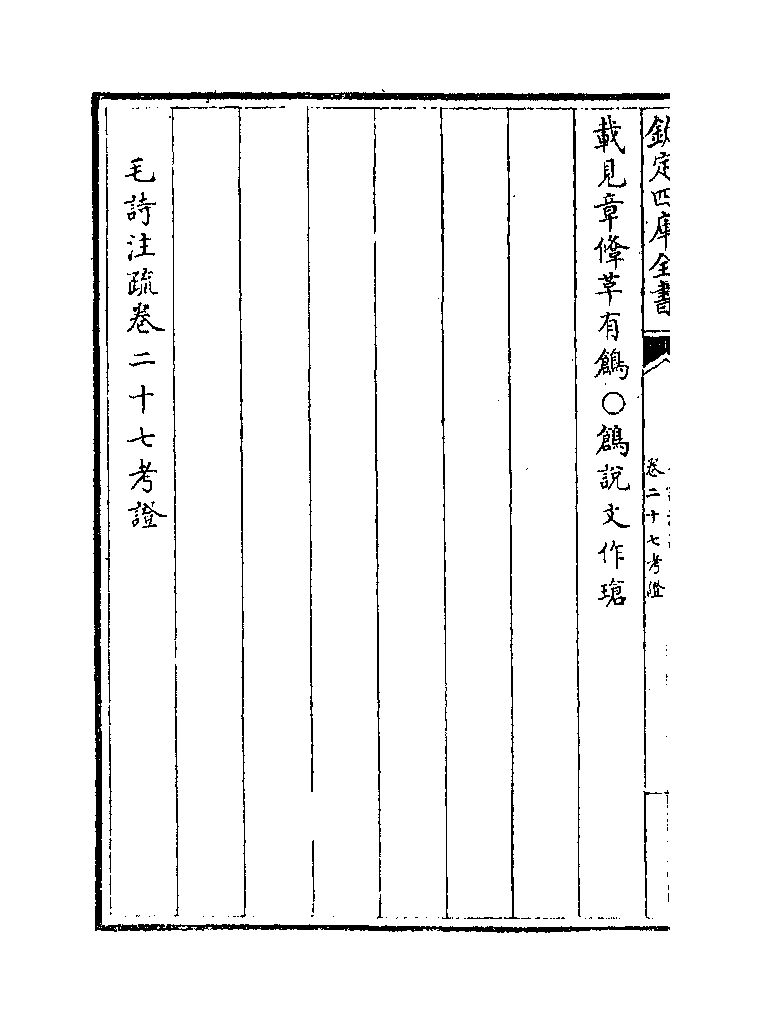 欽定四庫全書
卷二十七考證
載見章鞗革有鶬○鶬說文作瑲
毛詩注疏卷二十七考證